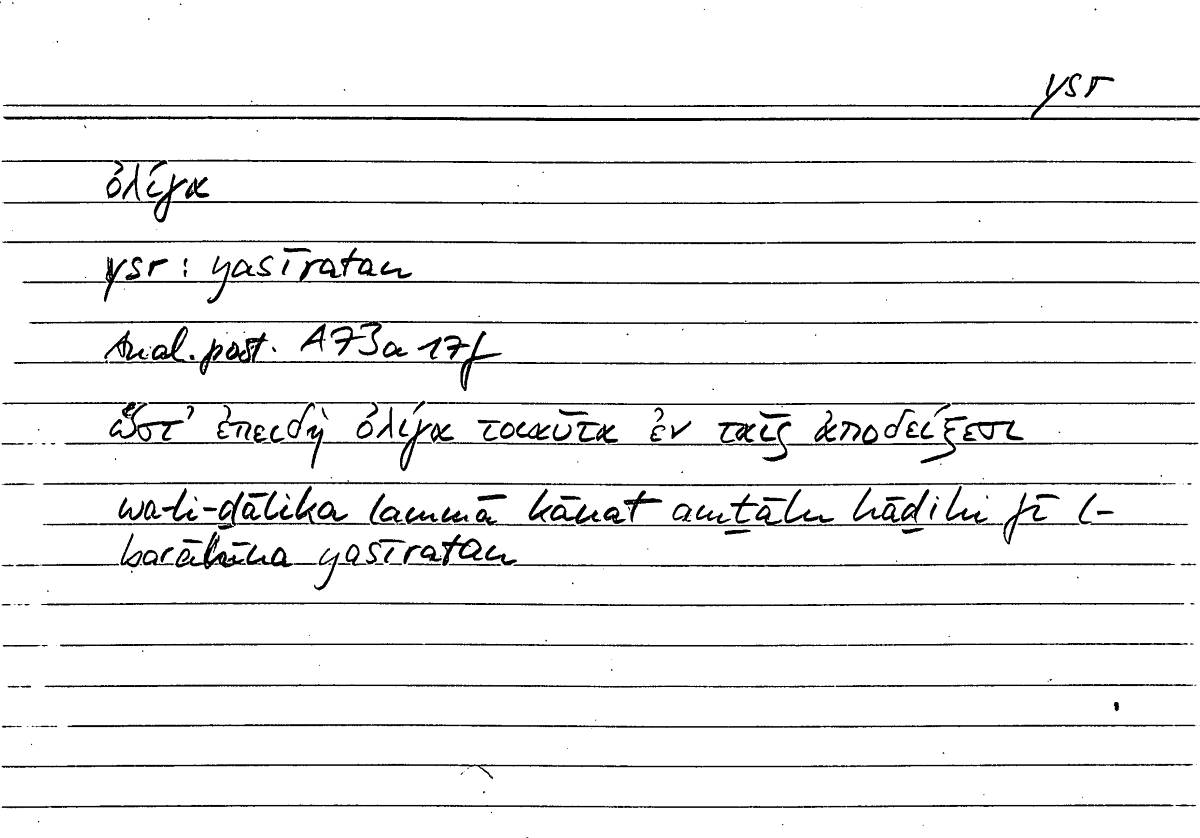 ysr
ὀλίγα
ysr : yasīratan
Anal. post. A 73a 17f
ὥστ᾽ ἐπειδὴ ὀλίγα τοιαῦτα ἐν ταῖς ἀποδείξεσι
wa-li-ḏālika lammā kānat amṯālu hāḏihi fī l-
barāhīna yasīratan